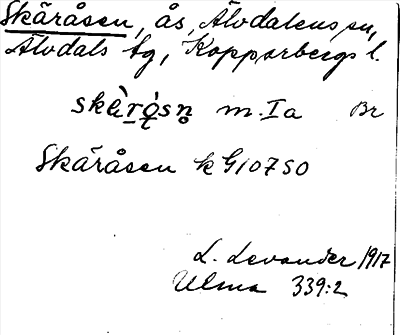 Skäråsen, ås, Älvdalens sn,
Älvdals tg, Kopparbergs l.
m. Ia Br
Skäråsen k G107 SO
L. Levander 1917
Ulma 339:2